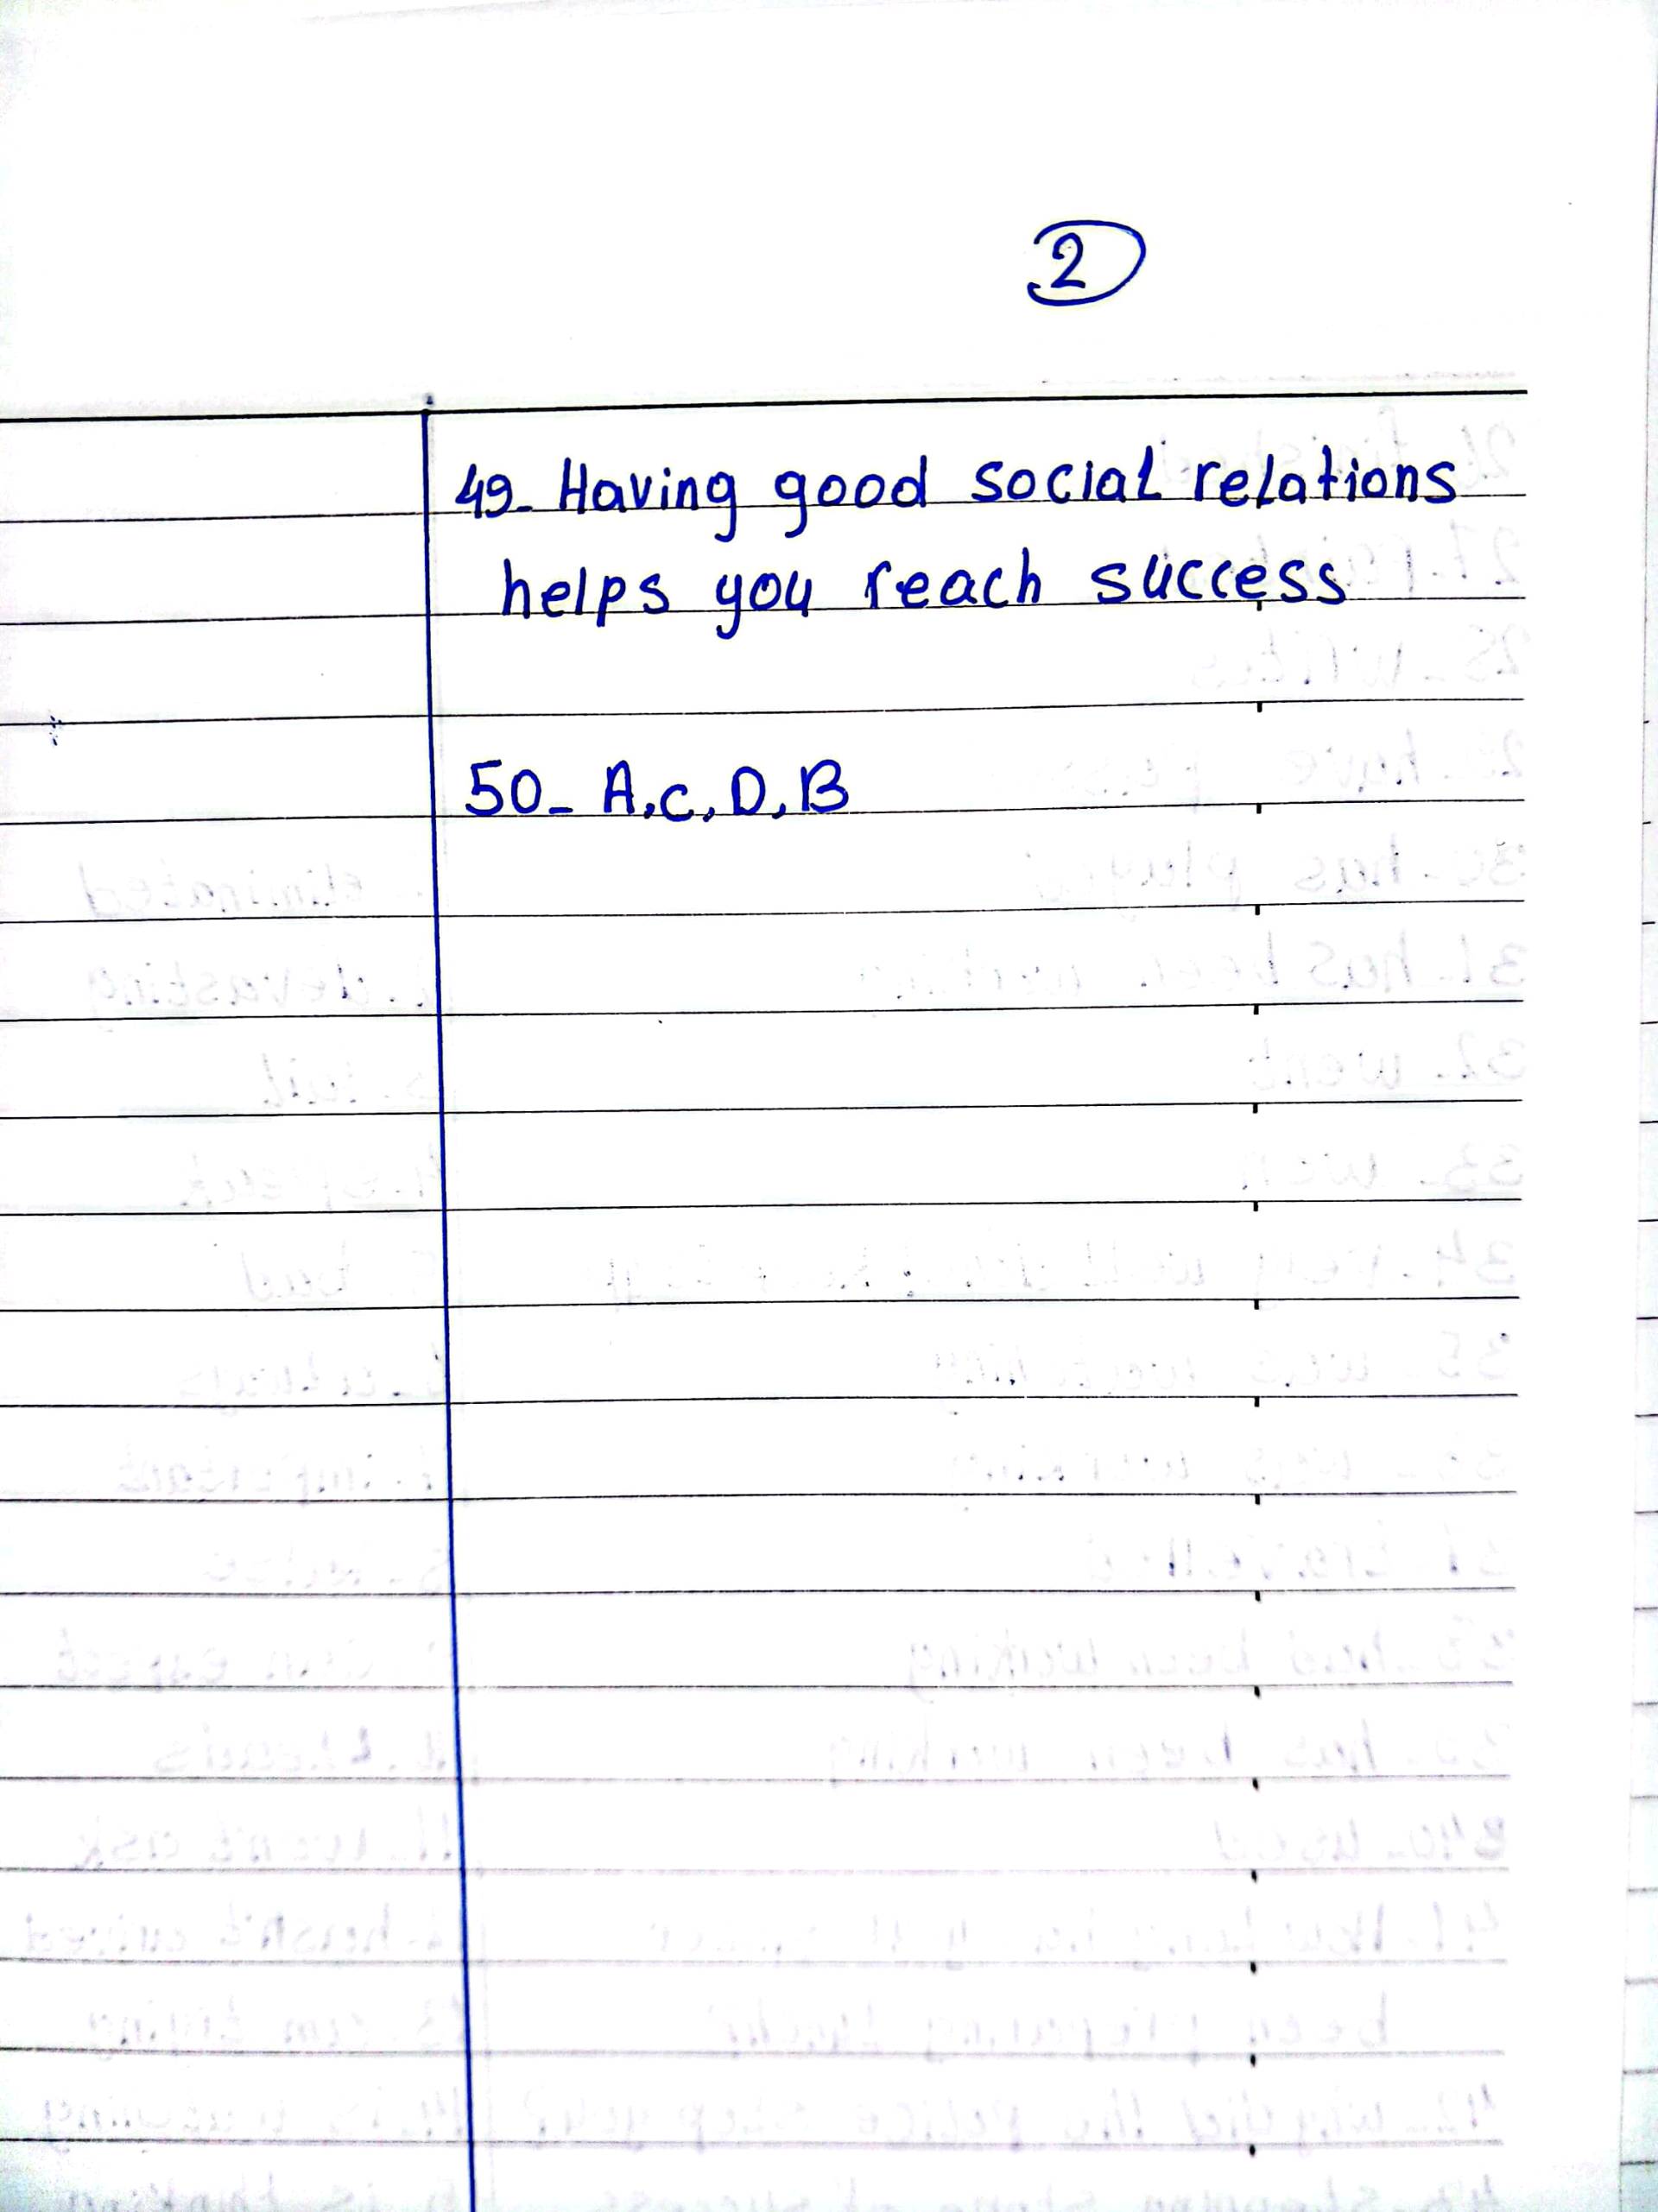 2
49_ Having good social relations
helps you reach success
50_ A,C,D,B